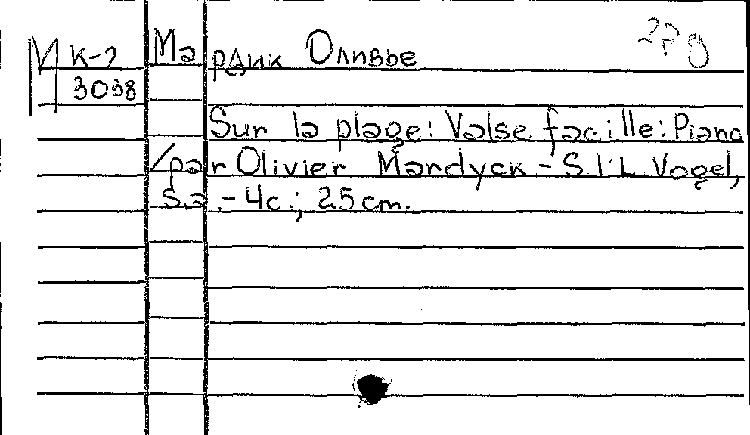 К-2 Мардик Оливье 22g
3038
Sur la plage: Valse facille: Piano
/par Olivier Mardyck - S.l: L Vogel,
s.a. - 4c.; 25cm.